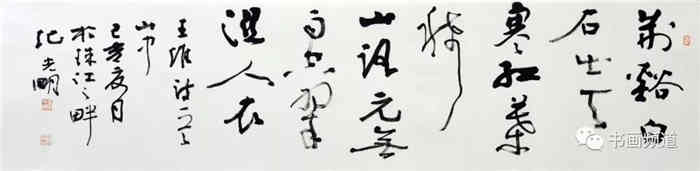 荆谿白
石出天
寒红葉
稀
山路元無
雨空翠
濕人衣
王维诗一首
山中
己亥夏月
於珠江之畔
纪光明
书画频道